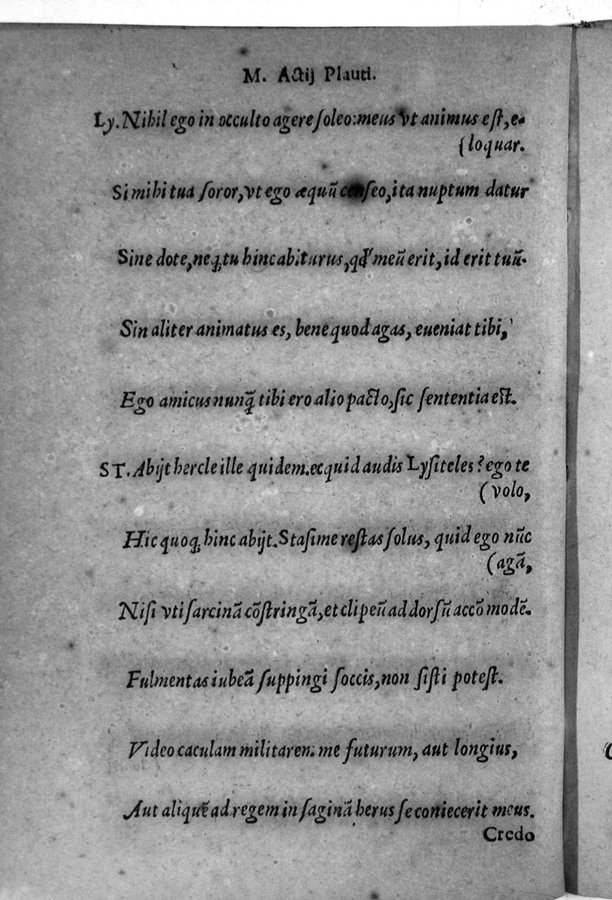 M. Actij Plauti.
Ly. Nihil ego in occulto agere soleo: meus vt animus est, e-
(loquar.
Si mihi tua soror, vt ego æquũ censeo, ita nuptum datur
Sine dote, neq; tu hinc abiturus, qđ meũ erit, id erit tuũ.
Sin aliter animatus es, bene quod agas, eueniat tibi,
Ego amicus nunq̃ tibi ero alio pacto, sic sententia est.
ST. Abijt hercle ille quidem. ecquid audis Lysiteles? ego te
(volo,
Hic quoq; hinc abijt. Stasime restas solus, quid ego nũc
(agã,
Nisi vti sarcinã cõstringã, et clipeũ ad dorsũ accõmodẽ.
Fulmentas iubeã suppingi soccis, non sisti potest.
Video caculam militarem me futurum, aut longius,
Aut aliquẽ ad regem in saginã herus se coniecerit meus.
Credo